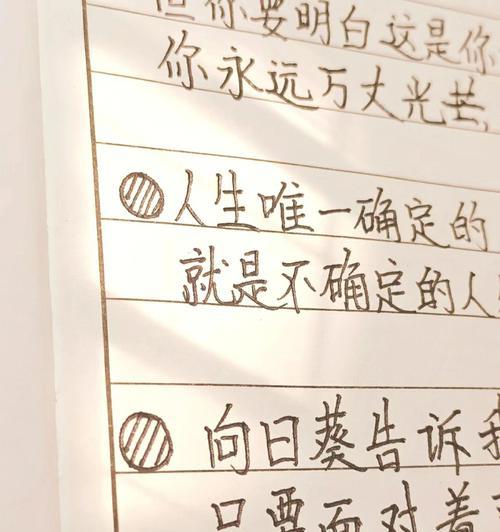 但你要明白这是你
你永远万丈光芒,
人生唯一确定的
就是不确定的人
向日葵告诉我
只要面对着